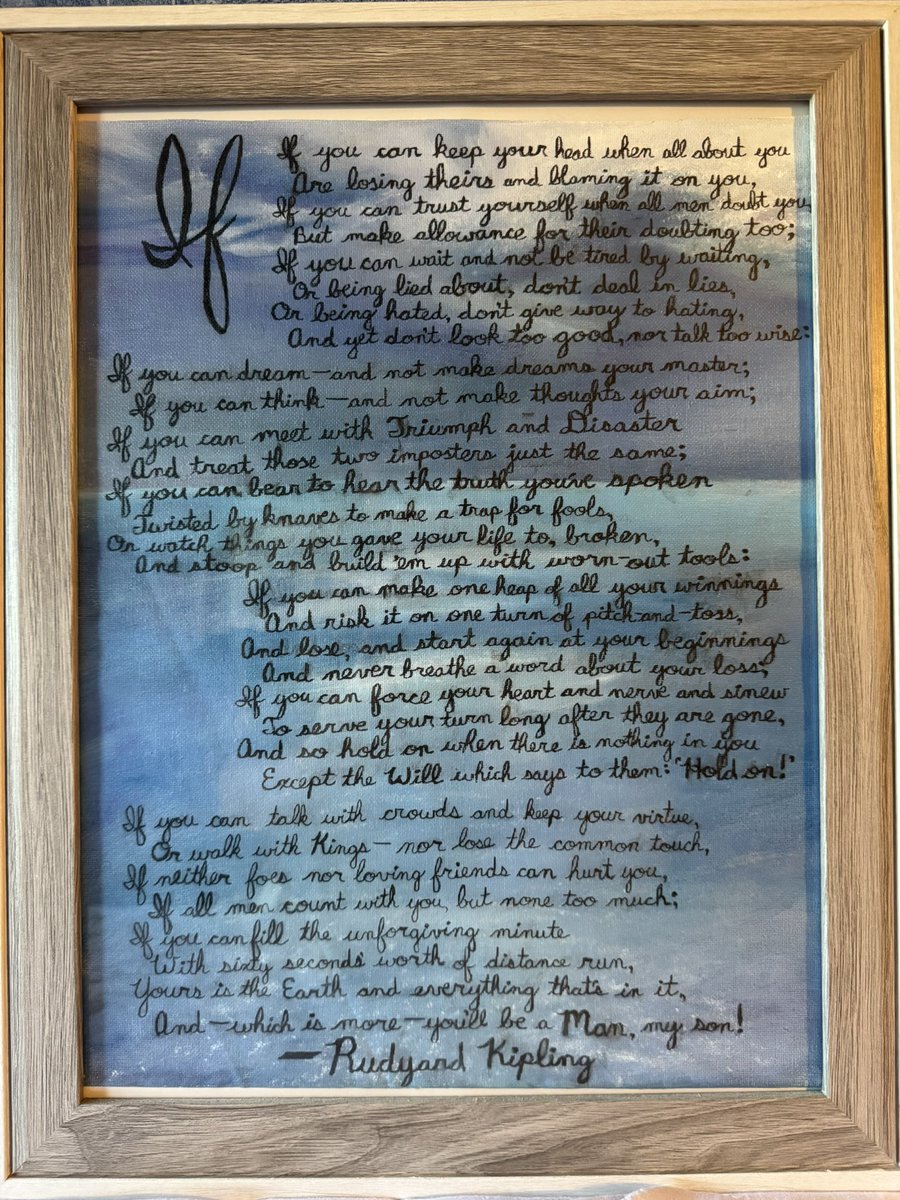 If
If you can keep your head when all about you
Are losing theirs and blaming it on you,
If you can trust yourself when all men doubt you
But make allowance for their doubting too;
If you can wait and not be tired by waiting,
Or being lied about, don't deal in lies,
Or being hated, don't give way to hating,
And yet don't look too good, nor talk too wise:
If you can dream—and not make dreams your master;
If you can think—and not make thoughts your aim;
If you can meet with Triumph and Disaster
And treat those two imposters just the same;
If you can bear to hear the truth you've spoken
Twisted by knaves to make a trap for fools,
Or watch things you gave your life to, broken,
And stoop and build 'em up with worn-out tools:
If you can make one heap of all your winnings
And risk it on one turn of pitch-and-toss,
And lose, and start again at your beginnings
And never breathe a word about your loss;
If you can force your heart and nerve and sinew
To serve your turn long after they are gone,
And so hold on when there is nothing in you
Except the Will which says to them: "Hold on!"
If you can talk with crowds and keep your virtue,
Or walk with Kings—nor lose the common touch,
If neither foes nor loving friends can hurt you,
If all men count with you, but none too much;
If you can fill the unforgiving minute
With sixty seconds' worth of distance run,
Yours is the Earth and everything that's in it,
And—which is more—you'll be a Man, my son!
—Rudyard Kipling